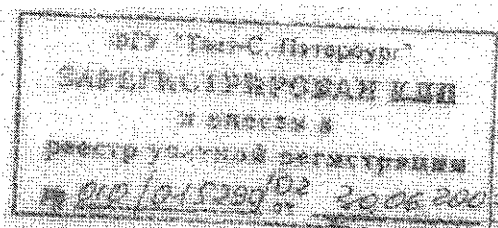 ФГУ "Тест-С.-Петербург"
ЗАРЕГИСТРИРОВАН КЛП
и внесен в
реестр учетной регистрации
№ 010/015290 от 20.06.200